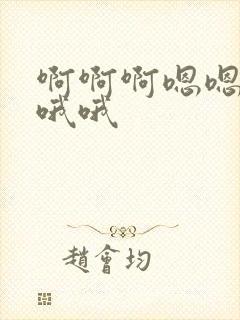 啊啊啊嗯嗯
哦哦
趙會均